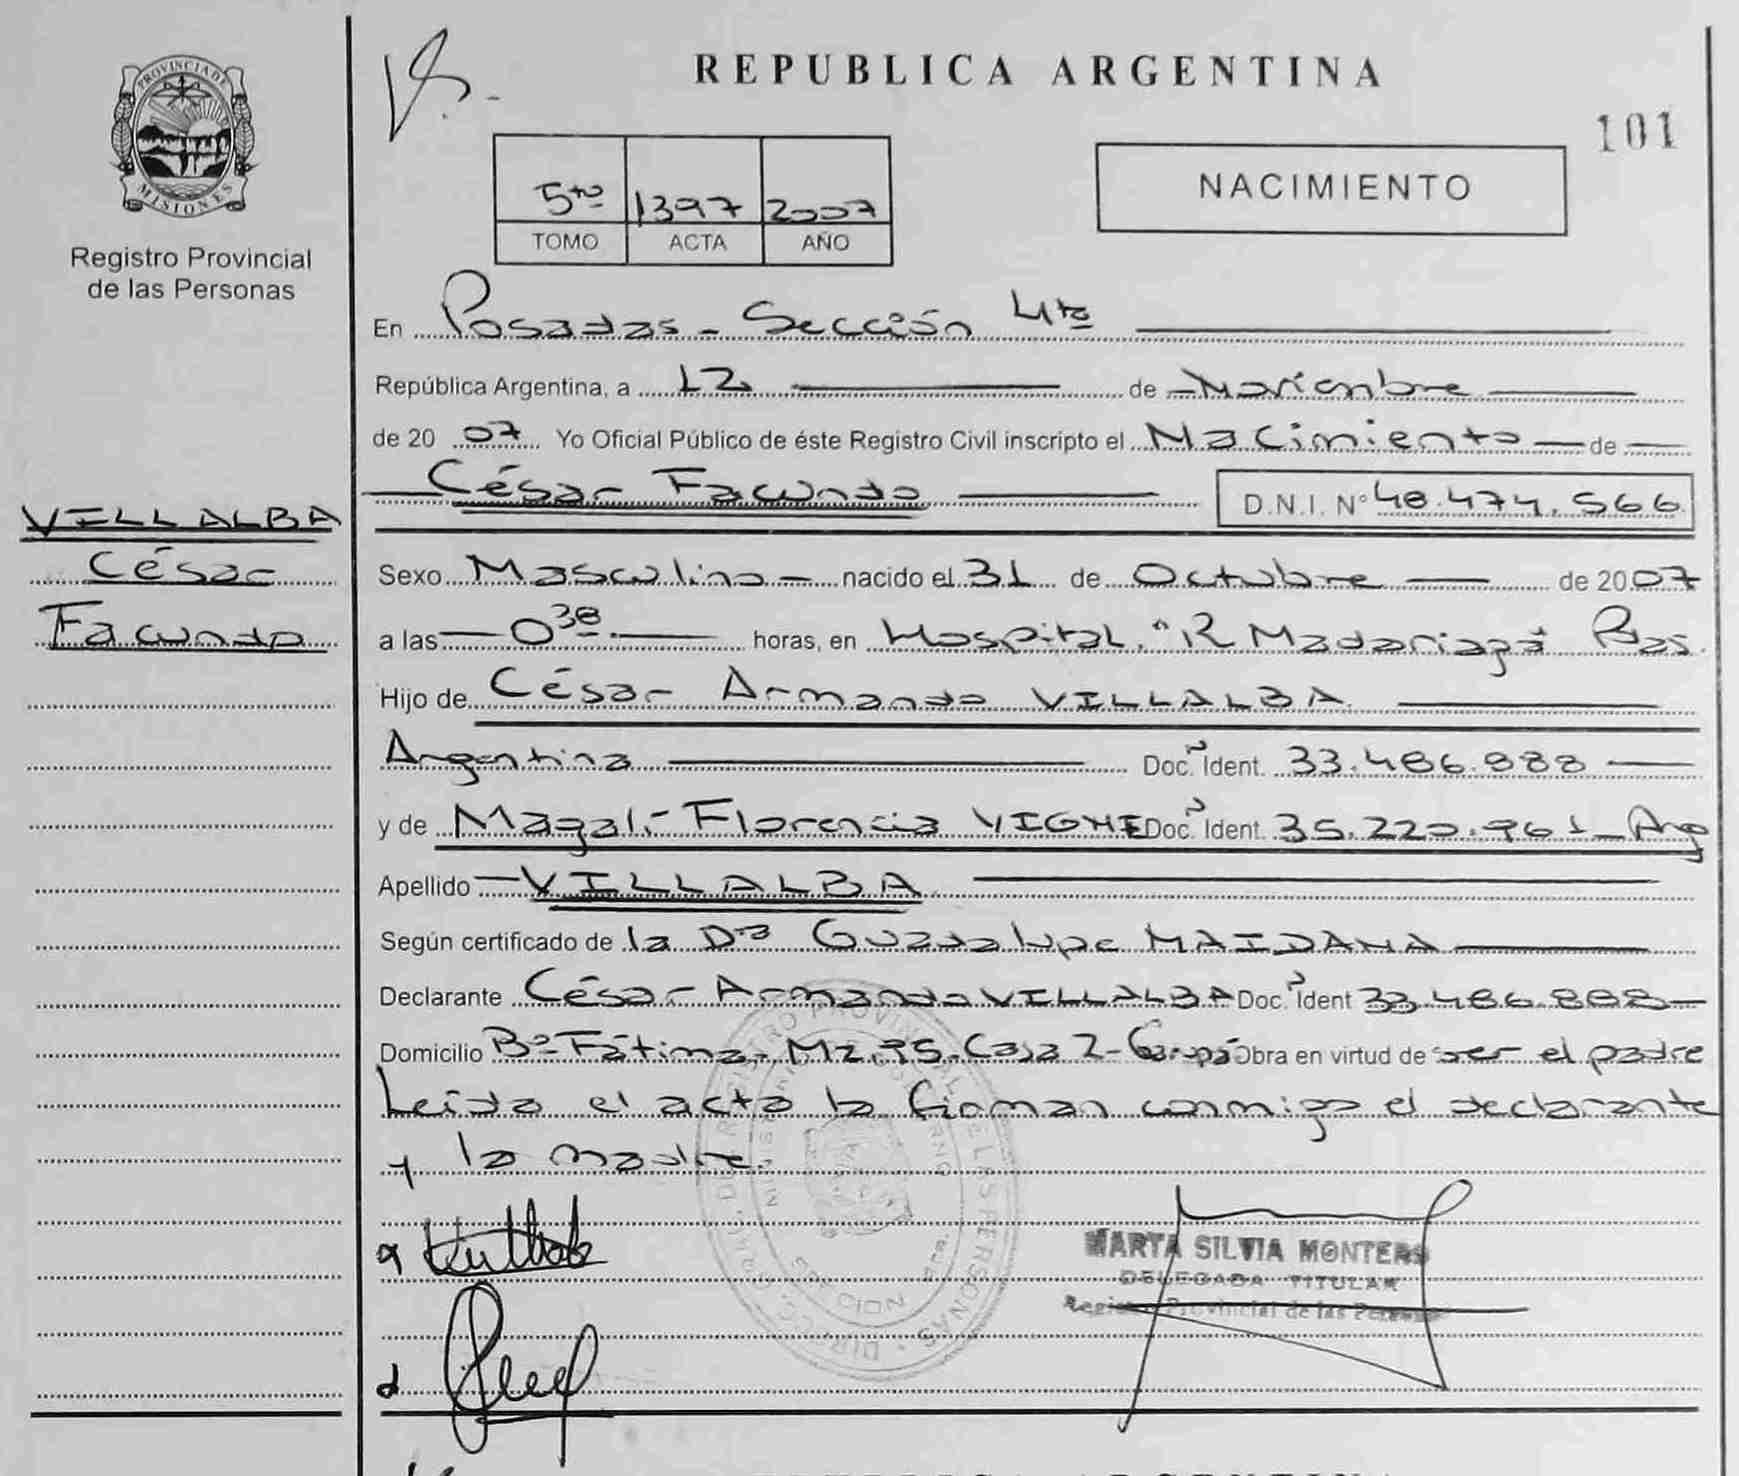 PROVINCIA DE
MISIONES
Registro Provincial
de las Personas
VILLALBA
César
Facundo
REPUBLICA ARGENTINA
101
5to 1397 2007
TOMO ACTA AÑO
NACIMIENTO
En Posadas - Sección 4ta
República Argentina, a 12 de Noviembre
de 20 07 Yo Oficial Público de éste Registro Civil inscripto el Nacimiento de
César Facundo D.N.I. N° 48.474.566
Sexo Masculino - nacido el 31 de Octubre de 20 07
a las 0 38 horas, en Hospital "R Madariaga" Pdas.
Hijo de César Armando VILLALBA
Argentina Doc. Ident. 33.486.888
y de Magalí Florencia VIGHE Doc. Ident. 35.220.961 - Arg
Apellido VILLALBA
Según certificado de la Dra Guadalupe MAIDANA
Declarante César Armando VILLALBA Doc. Ident 33.486.888
Domicilio B° Fátima - Mz. 95 - Casa 2 - Garupá Obra en virtud de ser el padre
Leida el acta la firman conmigo el declarante
y la madre.
MARTA SILVIA MONTERO
DELEGADA TITULAR
Registro Provincial de las Personas
REPUBLICA ARGENTINA